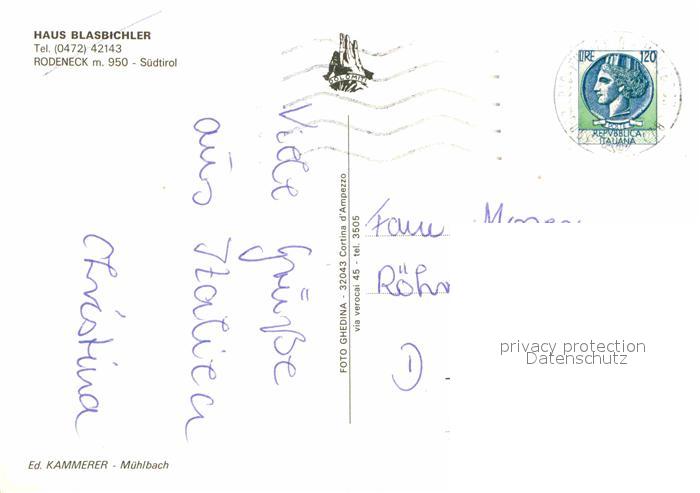 HAUS BLASBICHLER
Tel. (0472) 42143
RODENECK m. 950 - Südtirol
DOLOMITI
LIRE 120
POSTE
REPVBBLICA
ITALIANA
Viele Grüße
aus Italien
Christina
FOTO GHEDINA - 32043 Cortina d'Ampezzo
via verocai 45 - tel. 3505
Röhr
D
privacy protection
Datenschutz
Ed. KAMMERER - Mühlbach